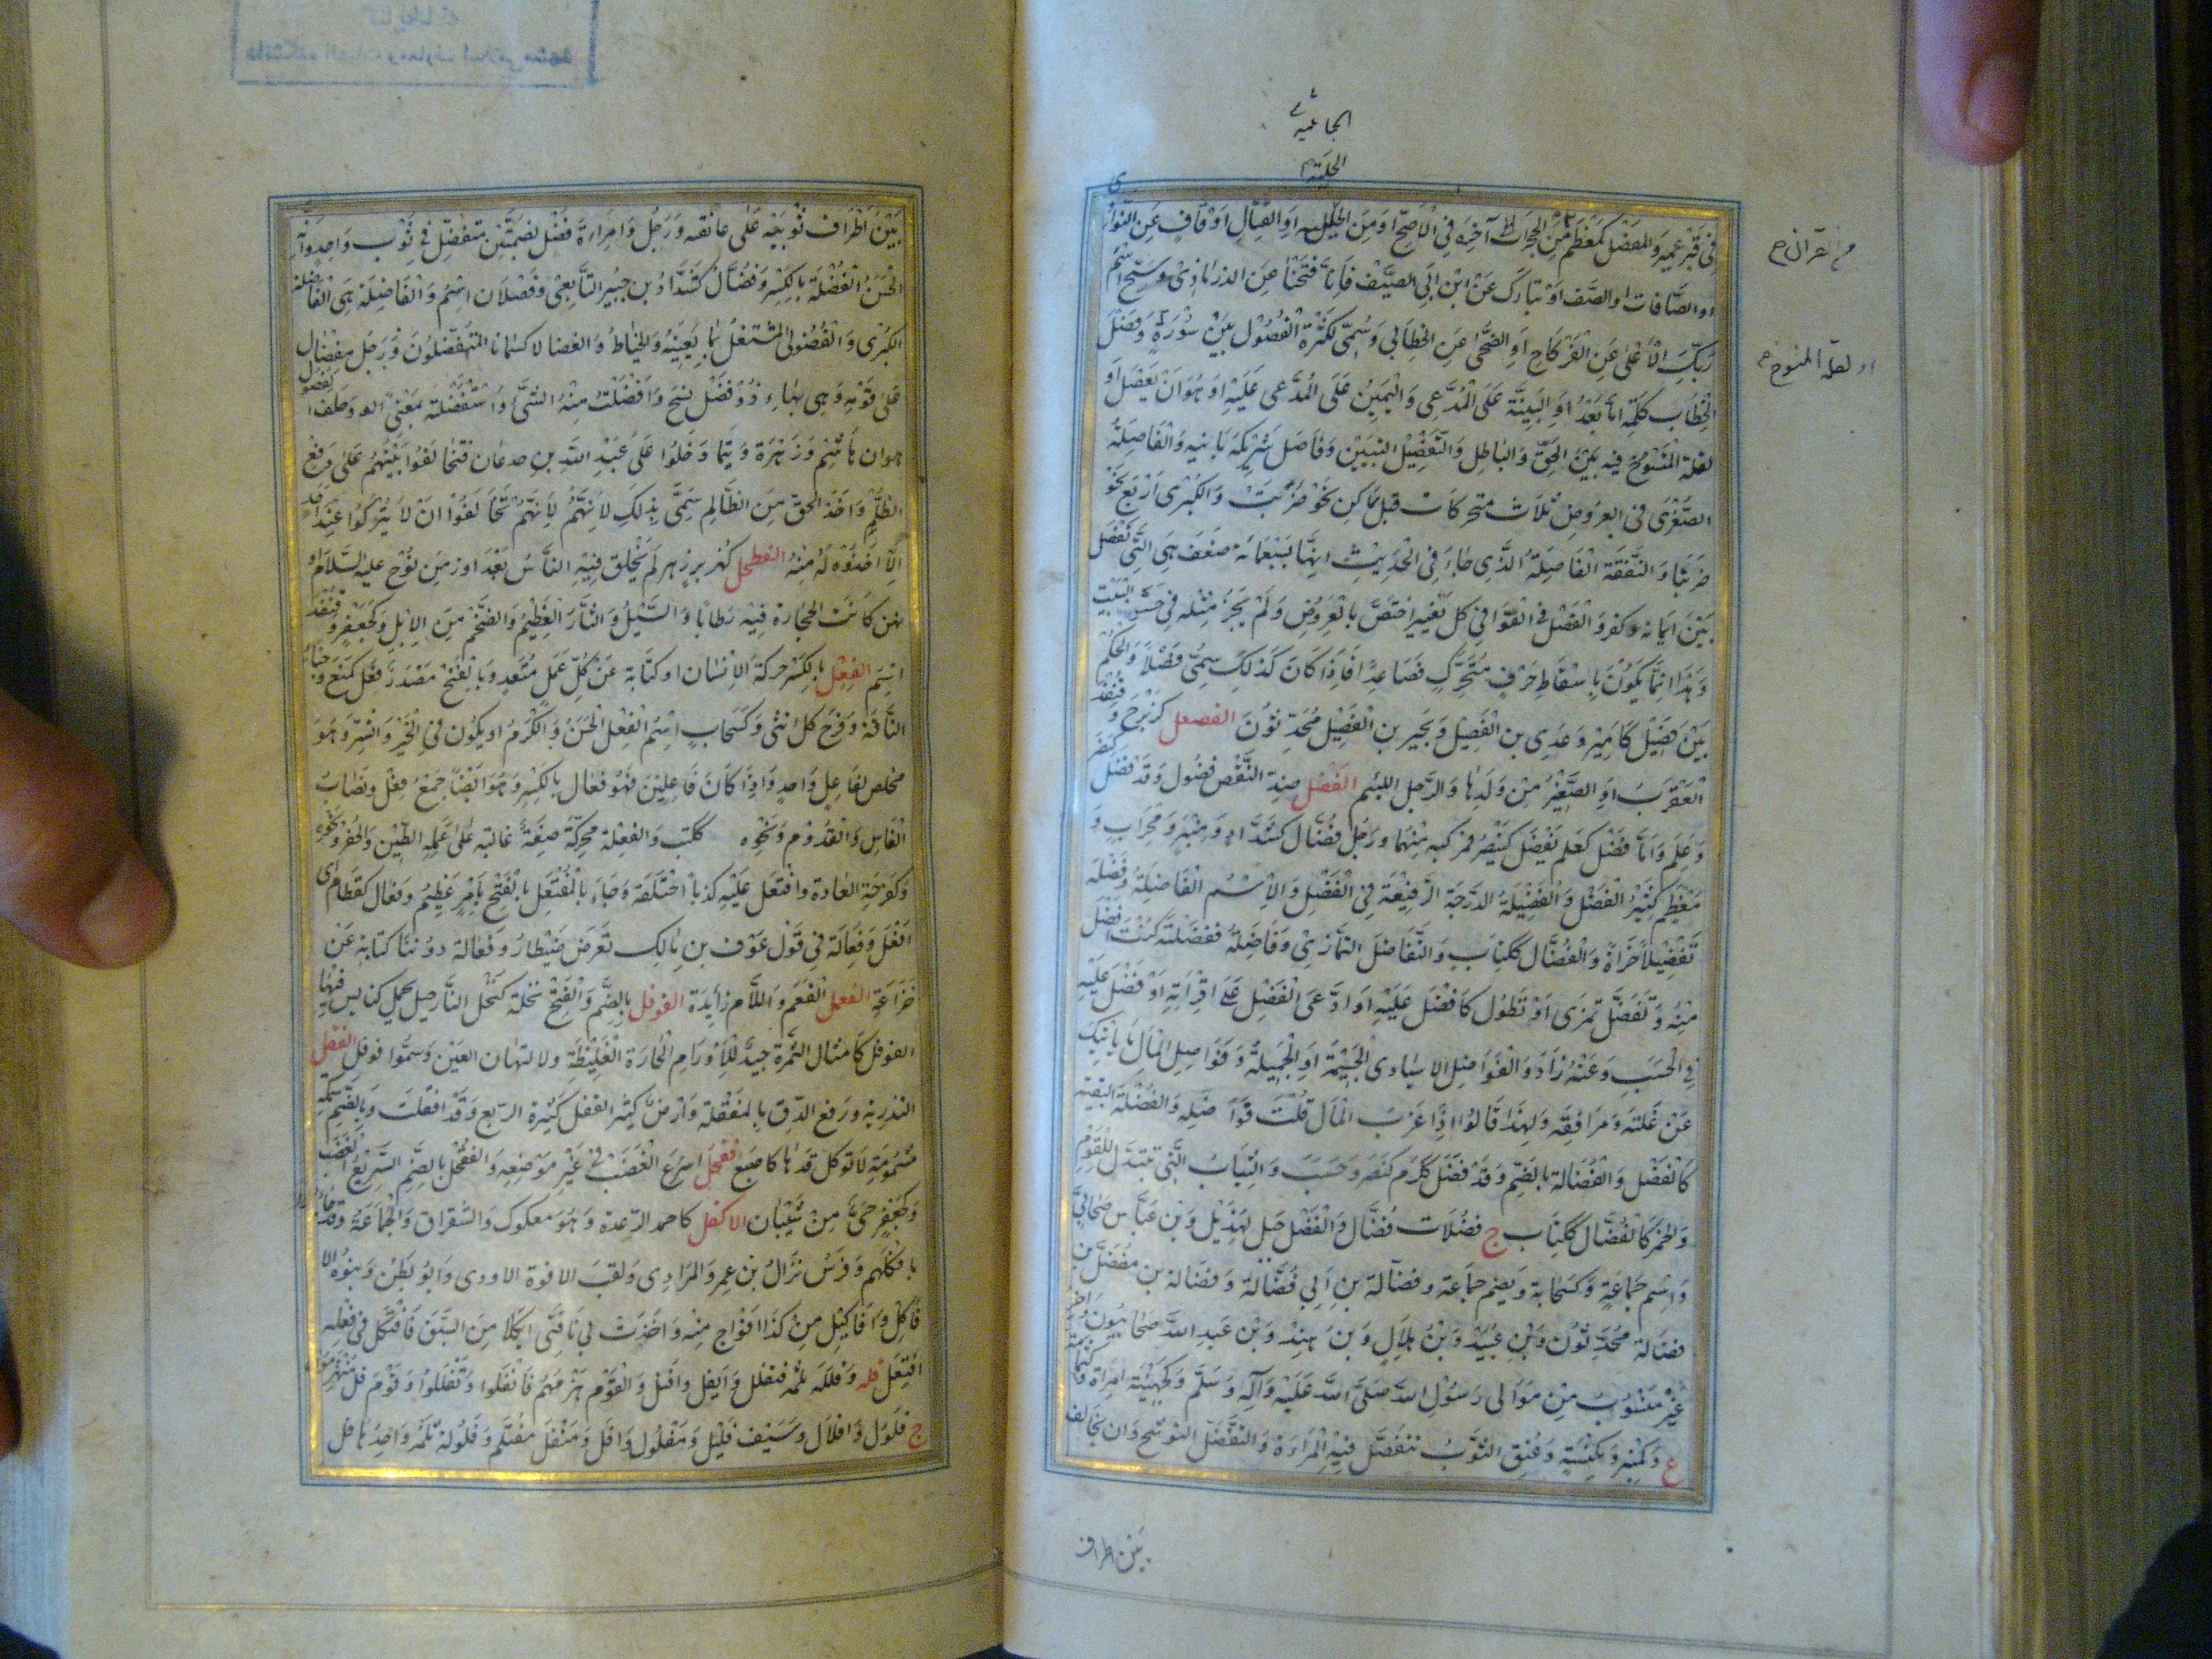 الجاثيه
من القران ح
في قبر عمه والمفصل كمعظم من الحجرات الى آخره في الأصح او من او القتال او قاف عن النواوي
او الصافات او الصف او تبارك عن ابن ابي الصيف فانا فتحنا عن الدزماري وسبح اسم
ربك الأعلى عن الفركاح او الضحى عن الخطابي وسمي لكثرة الفصول بين سورة وفصل
الخطاب كلمة اما بعد او البينة على المدعي واليمين على المدعى عليه او هو ان يفصل او
فيه بين الحق والباطل والتفصيل التبيين وفاصل شريكه باينه والفاصلة
الصغرى في العروض ثلاث متحركات قبل ساكن نحو ضربت والكبرى اربع نحو
ضربتا والنفقة الفاصلة الذي جاء في الحديث انها بسبعمائة ضعف هي التي تفصل
بين ايمانه وكفره والفصل في القوافي كل تغيير اختص بالعروض ولم يجز مثله في حشو البيت
وهذا انما يكون باسقاط حرف متحرك فصاعدا فاذا كان كذلك سمي فصلا والحكم
بين فصيل كامير وعدي بن الفصيل وبحير بن الفصيل محدثون الفصعل كزبرج وقنفذ
العقرب او الصغير من ولدها والرجل اللئيم الفضل ضد النقص فضول وقد فضل كنصر
وعلم واما فضل كعلم يفضل كينصر فمركبه منهما ورجل فضال كشداد ومنبر ومحراب و
معظم كثير الفضل والفضيلة الدرجة الرفيعة في الفضل والاسم الفاضلة وفضله
تفضيلا مزاه والفضال ككتاب والتفاضل التمازي وفاضله ففضلته كنت افضل
منه وتفضل تمزى او تطول كافضل عليه او ادعى الفضل على اقرانه او فضل عليه
في الحسب وعنه زاد والفواضل الايادي الجسيمة او الجميلة وفواضل المال ما ياتيك
عن غلته ومرافقه ولهذا قالوا اذا عزب المال قلت فواضله والفضلة البقية
كالفضل والفضالة بالضم وقد فضل كنصر وحسب والثياب التي تبتذل للنوم
والخمر كالفضال ككتاب ج فضلات فضال والفضل جبل لهذيل وبن عباس صحابي
واسم جماعة وكسحابة ويضم جماعة وفضالة بن ابي فضالة وفضالة بن مفضل بن
فضالة محدثون وبن عبيد وبن هلال وبن هند وبن عبد الله صحابيون واخر
غير منسوب من موالي رسول الله صلى الله عليه وآله وسلم وكجهينة امراة
وكمنبر ومكنسة وعنق الثوب تتفضل فيه المراءة والتفضل التوشح وان يخالف
بين اطراف
بين اطراف ثوبيه على عاتقه ورجل وامراءة فضل بضمتين متفضل في ثوب واحد وانه
لحسن الفضلة بالكسر وفضال كشداد بن جبير التابعي وفضلان اسم والفاضلة
الكبرى والفضولي المشتغل بما لا يعنيه والخياط والفضلا المتفضلون ورجل مفضال
على قومه وهي بهاء ذو فضل سمح وافضلت منه الشئ واستفضلته بمعنى وحلف الفضول
هو ان هاشم وزهرة وتيما دخلوا على عبد الله بن جدعان فتحالفوا بينهم على دفع
الظلم واخذ الحق من الظالم سمي بذلك لانهم تحالفوا ان لا يتركوا عند احد
الا اخذوه له منه الفطحل كهزبر دهر لم يخلق فيه الناس بعد او زمن نوح عليه السلام او
زمن كانت الحجارة فيه رطابا والسيل والتار العظيم والضخم من الابل وكجعفر وقنفذ
اسم الفعل بالكسر حركة الانسان او كناية عن كل عمل متعد وبالفتح مصدر فعل كمنع
الناقة وفرج كل انثى وكسحاب اسم الفعل الحسن والكرم او يكون في الخير والشر وهو
مخلص لفاعل واحد واذا كان فاعلين فهو فعال بالكسر وهو ايضا جمع فعل ونصاب
الفاس والقدوم ونحوه ككتب والفعلة محركة صفة غالبة على عملة الطين والحفر ونحوه
وكفرحة العادة وافتعل عليه كذبا اختلقه وجاء بالمفتعل بالفتح بامر عظيم وفعال كقطام
افعل وفعالة في قول عوف بن مالك تعرض ضيطار وفعالة دوننا كناية عن
خزاعة الفعمل الفعم واللام زايدة الفوفل بالضم والفتح نخلة كنخل النارجيل يحمل كبائس فيها
الفوفل كامثال التمرة جيد للاورام الحارة الغليظة ولالتهاب العين وسموا فوفل الفقل
التذرية ورفع الدق بالمفقلة وارض كثيرة الفقل كثيرة الريع وقد افقلت وبالضم سمكة
مسمومة لا توكل قدرها كاصبع فقحل اسرع الغضب في غير موضعه والفقحل بالضم السريع الغضب
وكجعفر حي من شيبان الافكل كاحمد الرعدة وهو مفكول والشقراق والجماعة وقد جاءوا
بافكلهم وفرس نزال بن عمرو المرادي ولقب الافوه الاودي وابو بطن وبنوه الا
فاكل وافاكيل من كذا افواج منه واخذت بي ناقتي افكلا من السبق فافتكل في فعله
افتعل فله وفلله ثلمه فتفلل وانفل وافتل والقوم هزمهم فانفلوا وتفللوا وقوم فل منهزمون
ج فلول وافلال وسيف فليل ومفلول وافل ومنفل منثلم وفلوله ثلمه واحدها فل